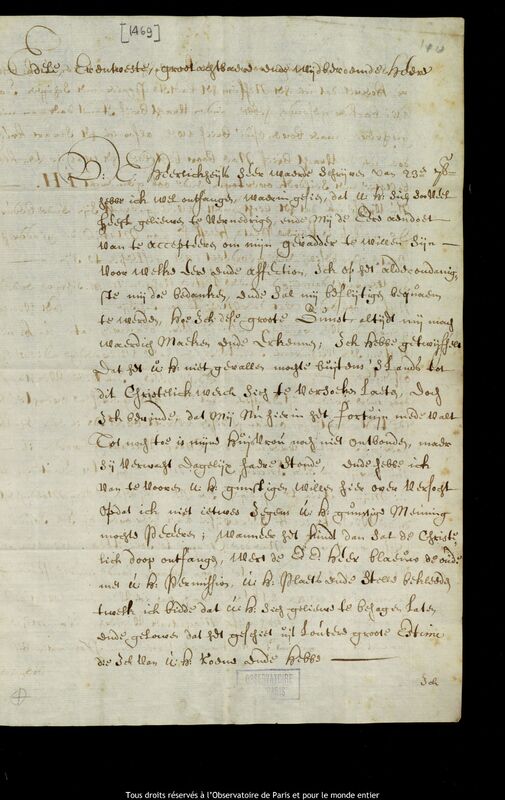 [1469]
Edele Erentveste, grootachtbaere ende wijdtberoemde Heere
U. H. Heerlickheijts seer waerde schrijven van 23en
hebbe ick wel ontfangen, waerin gesien, dat U H: sich soo veel
heeft gelieven te vernedrigen, ende mij de Eere aendoet
van te accepteren om mijn gevadder te willen sijn
voor welke Eere ende affection, Ick op het alderoodmoedig-
ste mij doe bedancken, ende sal mij befljtigen bequaem
te werden, hoe Ick dese groote Gunst altijdt mij mach
waerdich Maeken ende Erkennen; Ick hebbe getwijffelt
Dat het U H: niet gevallen mochte buijtens Lands tot
dit Christelick werck sich te versoeken Laeten, Doch
Ick bevinde, dat Mij Nu hierin het fortuijn mede valt
Tot noch toe is mijne Huijsvrou noch niet ontbonden, maer
sij verwacht dagelijx haere stonde, ende hebbe ick
van te vooren U H: gunstigen willen hier over versocht
opdat ick niet ietwes tegens U H: gunstige Meening
mochte ; Wanneer het kindt dan dat de Christe-
lich doop ontfangen, Wert de E: Heer blaeuw de oude
met U H: Permission, U H: Plaets ende stelle bekleeden
twelk ick bidde dat U H: sich gelieve te behagen Laten
ende gelooven dat het geschiet uijt Loutere groote Estime
die Ick van U H: Roeme ende Hebbe
Ick
OBSERVATOIRE
PARIS
Tous droits réservés à l'Observatoire de Paris et pour le monde entier